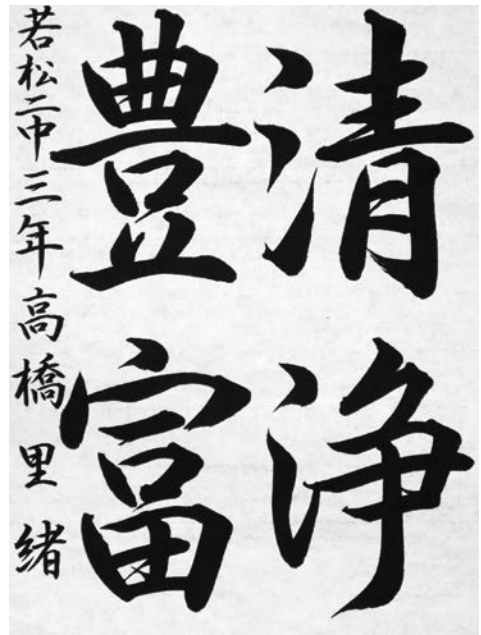 清浄
豊富
若松二中三年高橋里緒